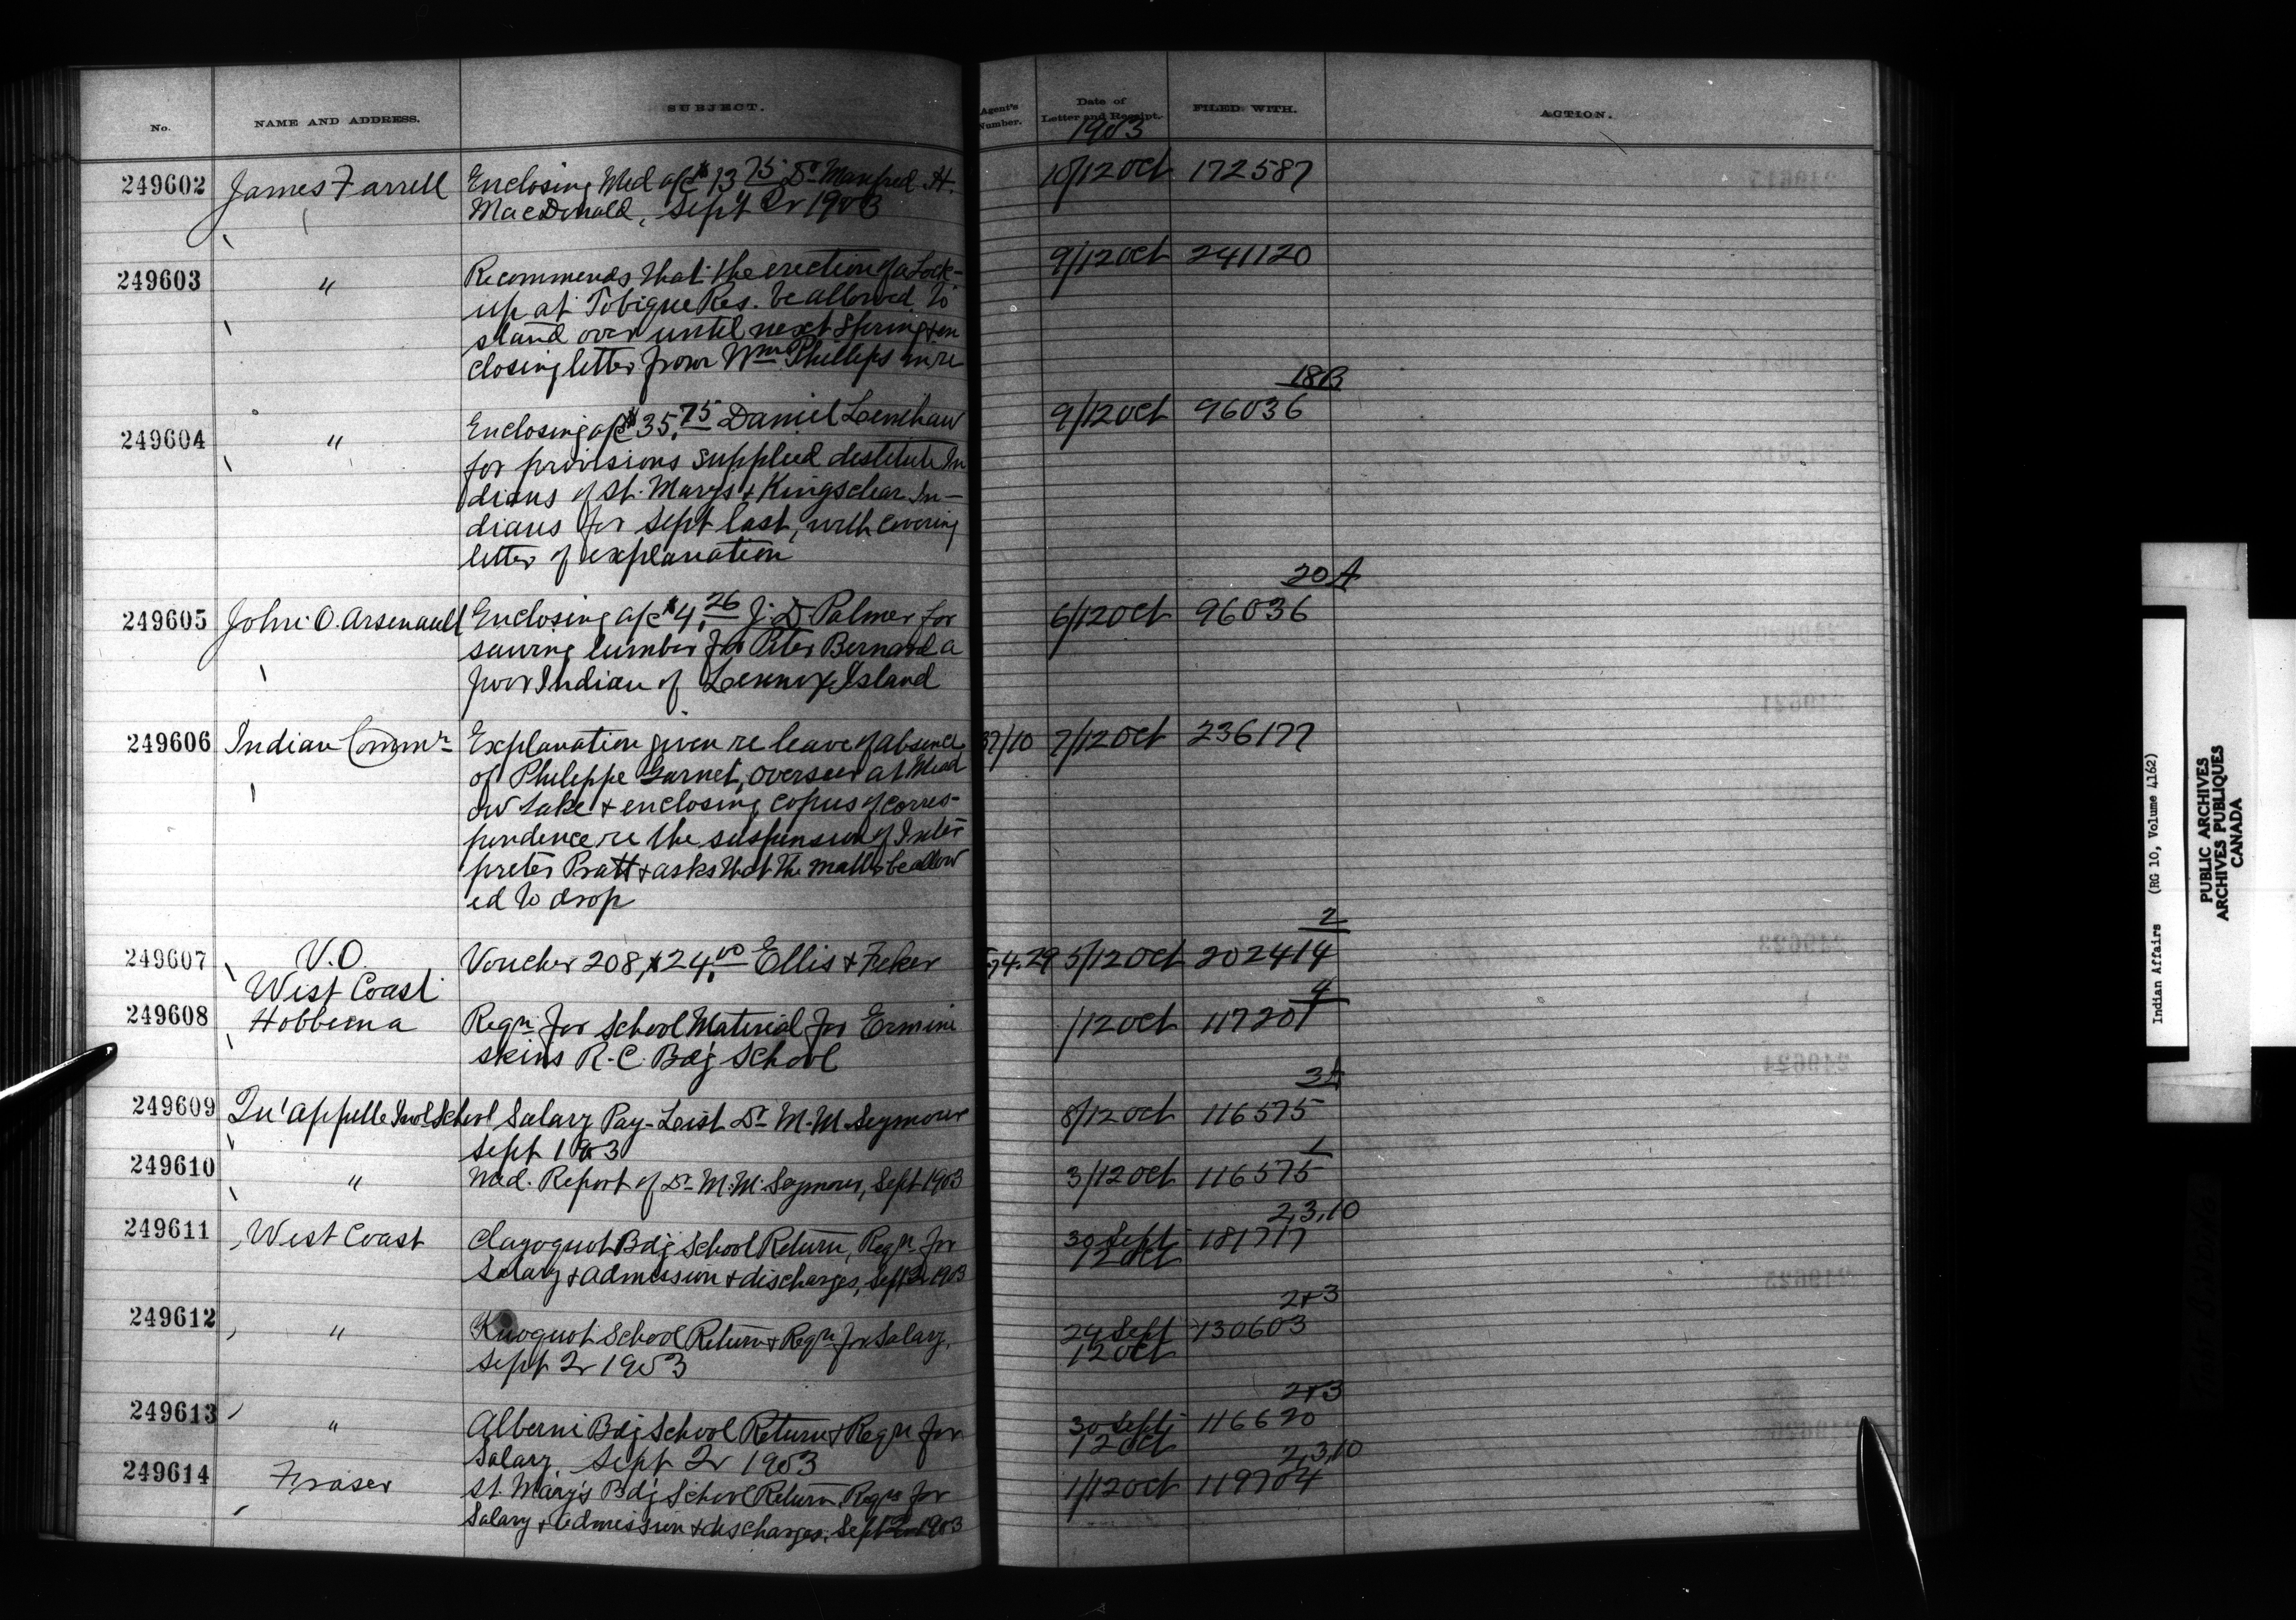 No.
NAME AND ADDRESS.
SUBJECT.
Agent's Number.
Date of Letter and Receipt.
FILED WITH.
ACTION.
1903
249602 James Farrell Enclosing Med a/c $13.75 Dr Manfred H. 10/12 Oct 172587
MacDonald, Sept Qr 1903
249603 " Recommends that the erection of a Lock- 9/12 Oct 241120
up at Tobique Res. be allowed to
stand over until next Spring & en
closing letter from Wm Phillips in re
18B
249604 " Enclosing a/c $35.75 Daniel Lenihaw 9/12 Oct 96036
for provisions supplied destitute In
dians of St. Marys & Kingsclear In-
dians for Sept last, with covering
letter of explanation
20A
249605 John O. Arsenault Enclosing a/c $4.26 J. D. Palmer for 6/12 Oct 96036
sawing lumber for Peter Bernard a
poor Indian of Lennox Island
249606 Indian Commr Explanation given re leave of absence 37/10 7/12 Oct 236177
of Philippe Garnet, overseer at Mead
ow Lake & enclosing copies of corres-
pondence re the suspension of Inter
preter Pratt & asks that the matter be allow
ed to drop
2
249607 V.O. Voucher 208, $24.00 Ellis & 5/12 Oct 202414
West Coast
4
249608 Hobbema Reqn for School Material for Ermine /12 Oct 117207
skins R.C. Bdg School
3A
249609 Qu'Appelle Indl School Salary Pay-List Dr M.M. Seymour 8/12 Oct 116575
Sept 1903
249610 " Med. Report of Dr M.M. Seymour, Sept 1903 3/12 Oct 116575
2,3,10
249611 West Coast Clayoquot Bdg School Return, Reqn for 30 Sept 181717
12 Oct
Salary & admission & discharges, Sept Qr 1903
2&3
249612 " School Return & Reqn for Salary, 24 Sept 130603
12 Oct
Sept Qr 1903
2&3
249613 " Alberni Bdg School Return & Reqn for 30 Sept 116620
12 Oct
Salary, Sept Qr 1903
2,3,10
249614 Fraser St. Mary's Bdg School Return, Reqn for 1/12 Oct 119704
Salary & admission & discharges, Sept Qr 1903
Indian Affairs (RG 10, Volume 4162)
PUBLIC ARCHIVES
ARCHIVES PUBLIQUES
CANADA